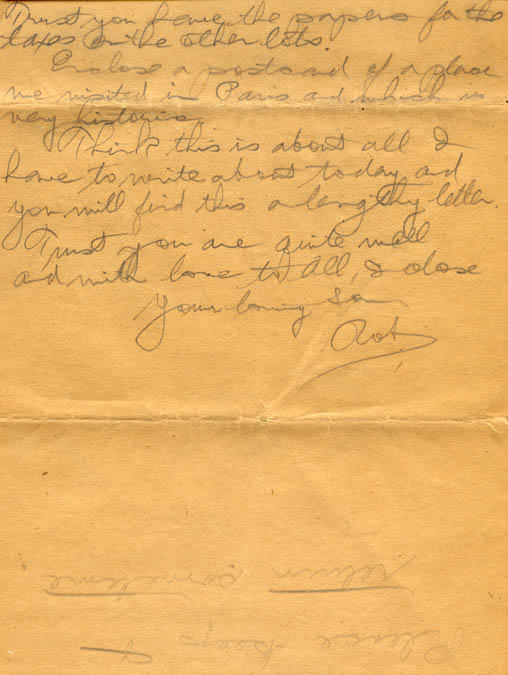 Trust you have the papers for the
taxes on the other lots.
Enclose a postcard of a place
we visited in Paris and which is
very historic.
Think this is about all I
have to write about today and
you will find this a lengthy letter.
Trust you are quite well
and with love to all, I close
Your loving Son
Rob.
Please keep &
return sometime